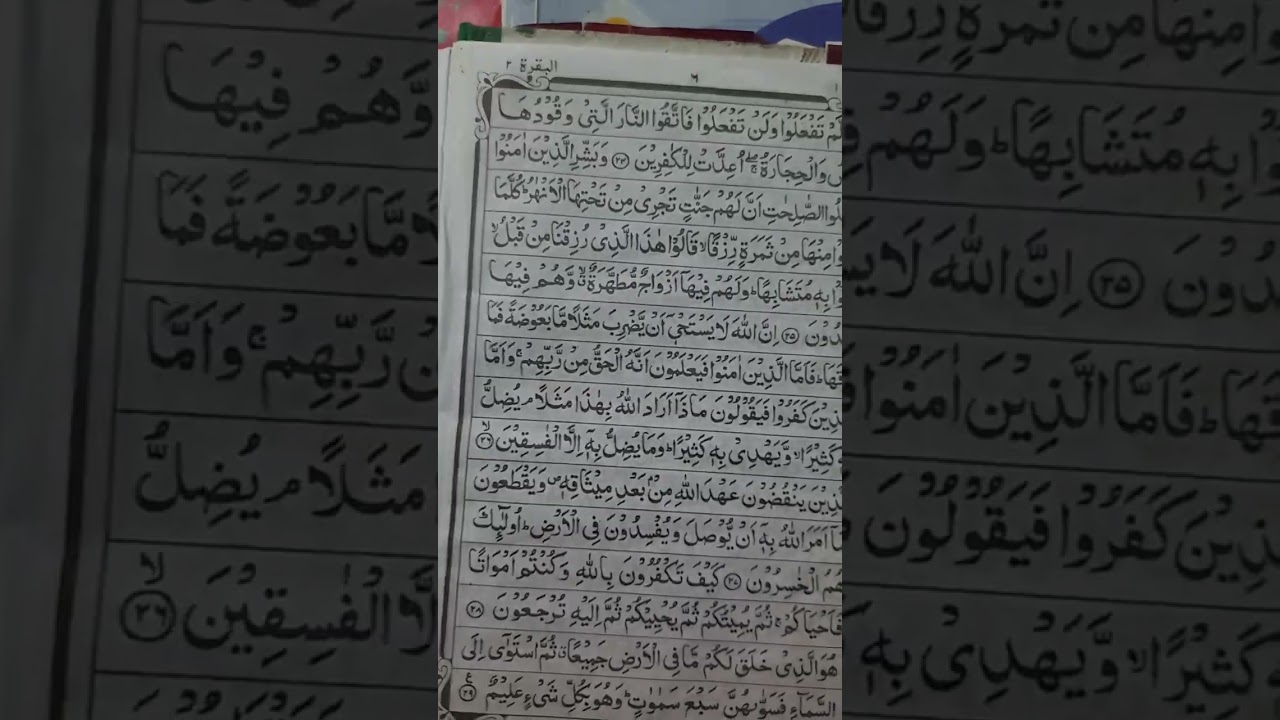 البقرة ٢
٦
تَفْعَلُوْا وَلَنْ تَفْعَلُوْا فَاتَّقُوا النَّارَ الَّتِىْ وَقُوْدُهَا
وَالْحِجَارَةُ ۖۚ اُعِدَّتْ لِلْكٰفِرِيْنَ ۝٢٤ وَبَشِّرِ الَّذِيْنَ اٰمَنُوْا
الصّٰلِحٰتِ اَنَّ لَهُمْ جَنّٰتٍ تَجْرِىْ مِنْ تَحْتِهَا الْاَنْهٰرُ ؕ كُلَّمَا
مِنْهَا مِنْ ثَمَرَةٍ رِّزْقًا ۙ قَالُوْا هٰذَا الَّذِىْ رُزِقْنَا مِنْ قَبْلُ ۙ
بِهٖ مُتَشَابِهًا ؕ وَلَهُمْ فِيْهَاۤ اَزْوَاجٌ مُّطَهَّرَةٌ ۙ وَّهُمْ فِيْهَا
۝٢٥ اِنَّ اللّٰهَ لَا يَسْتَحْىٖۤ اَنْ يَّضْرِبَ مَثَلًا مَّا بَعُوْضَةً فَمَا
فَاَمَّا الَّذِيْنَ اٰمَنُوْا فَيَعْلَمُوْنَ اَنَّهُ الْحَقُّ مِنْ رَّبِّهِمْ ۚ وَاَمَّا
كَفَرُوْا فَيَقُوْلُوْنَ مَاذَاۤ اَرَادَ اللّٰهُ بِهٰذَا مَثَلًا ۘ يُضِلُّ
كَثِيْرًا ۙ وَّيَهْدِىْ بِهٖ كَثِيْرًا ؕ وَمَا يُضِلُّ بِهٖۤ اِلَّا الْفٰسِقِيْنَ ۝٢٦ ۙ
يَنْقُضُوْنَ عَهْدَ اللّٰهِ مِنْۢ بَعْدِ مِيْثَاقِهٖ ص وَيَقْطَعُوْنَ
اَمَرَ اللّٰهُ بِهٖۤ اَنْ يُّوْصَلَ وَيُفْسِدُوْنَ فِى الْاَرْضِ ؕ اُولٰٓئِكَ
هُمُ الْخٰسِرُوْنَ ۝٢٧ كَيْفَ تَكْفُرُوْنَ بِاللّٰهِ وَكُنْتُمْ اَمْوَاتًا
فَاَحْيَاكُمْ ۚ ثُمَّ يُمِيْتُكُمْ ثُمَّ يُحْيِيْكُمْ ثُمَّ اِلَيْهِ تُرْجَعُوْنَ ۝٢٨
هُوَ الَّذِىْ خَلَقَ لَكُمْ مَّا فِى الْاَرْضِ جَمِيْعًا ۗ ثُمَّ اسْتَوٰٓى اِلَى
السَّمَآءِ فَسَوّٰىهُنَّ سَبْعَ سَمٰوٰتٍ ؕ وَهُوَ بِكُلِّ شَىْءٍ عَلِيْمٌ ۝٢٩ ع